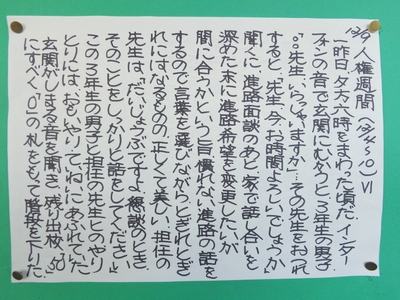 12/6 人権週間(12/4〜10) Ⅵ
一昨日夕方六時をまわった頃だ。インター
フォンの音で玄関にむかうと3年生の男子
「○○先生、いらっしゃいますか」その先生をおつれ
すると「先生、今、お時間よろしいでしょうか」
聞くに、進路面談のあと、家で話し合いを
深めた末に進路希望を変更したいが
間に合うかという。言い慣れない進路の話を
するので言葉を選びながら、とぎれとぎ
れにはなるものの正しくて美しい。担任の
先生は、「だいじょうぶですよ。懇談のとき、
そのことをしっかりと話をしてください」
この3年生の男子と担任の先生とのやり
とりには、おもいやりていねいにあふれていた
玄関がしまる音を聞き、残り出校
にすべく「0」の札をもって階段を下りた。